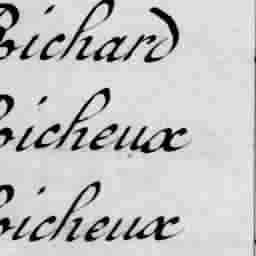 Bichard
Bicheux
Bicheux